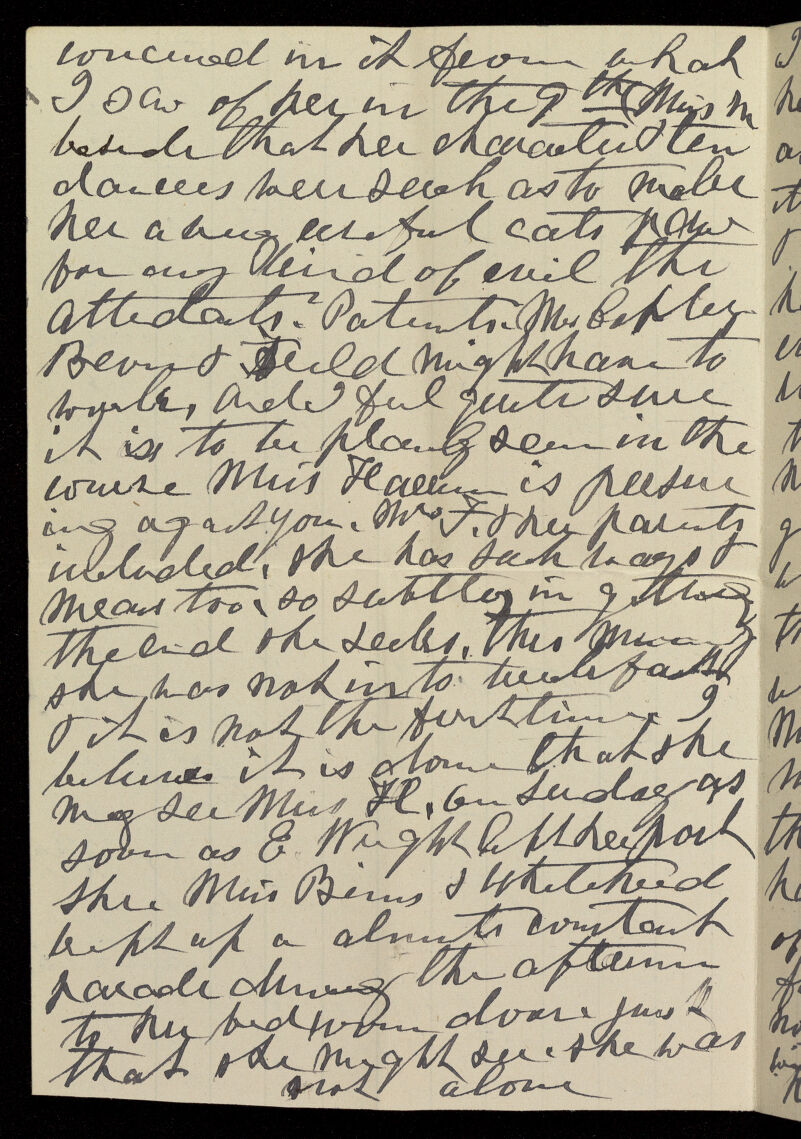 concerned in it from what
I saw of her in the 9th (Miss M
beside that her character & ten
dances were such as to make
her a very useful cats paw
for any kind of evil the
attedants. Patients. Mrs
& Feild might have to
work, and I feel quite sure
it is to be plainly seen in the
course Miss is persue
ing against you. Mrs F. & her parents
included, she has such ways &
means too, so subtley in getting
the end she seeks. This morning
she was not in to breakfast
& it is not the first time. I
believe it is alone that she
may see Miss H. On Sunday as
soon as E Wright left her post
she Miss Binns & Whitehead
kept up a almost constant
parade during the afternoon
to her bedroom door just
that she might see she was
not alone